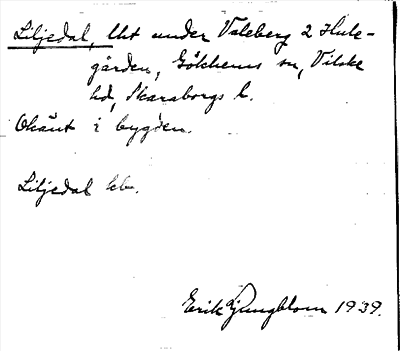 Liljedal, lht under Valeberg 2 Hule-
gården, Gökhems sn, Vilske
hd, Skaraborgs l.
Okänt i bygden.
Liljedal
Erik Ljungblom 1939.